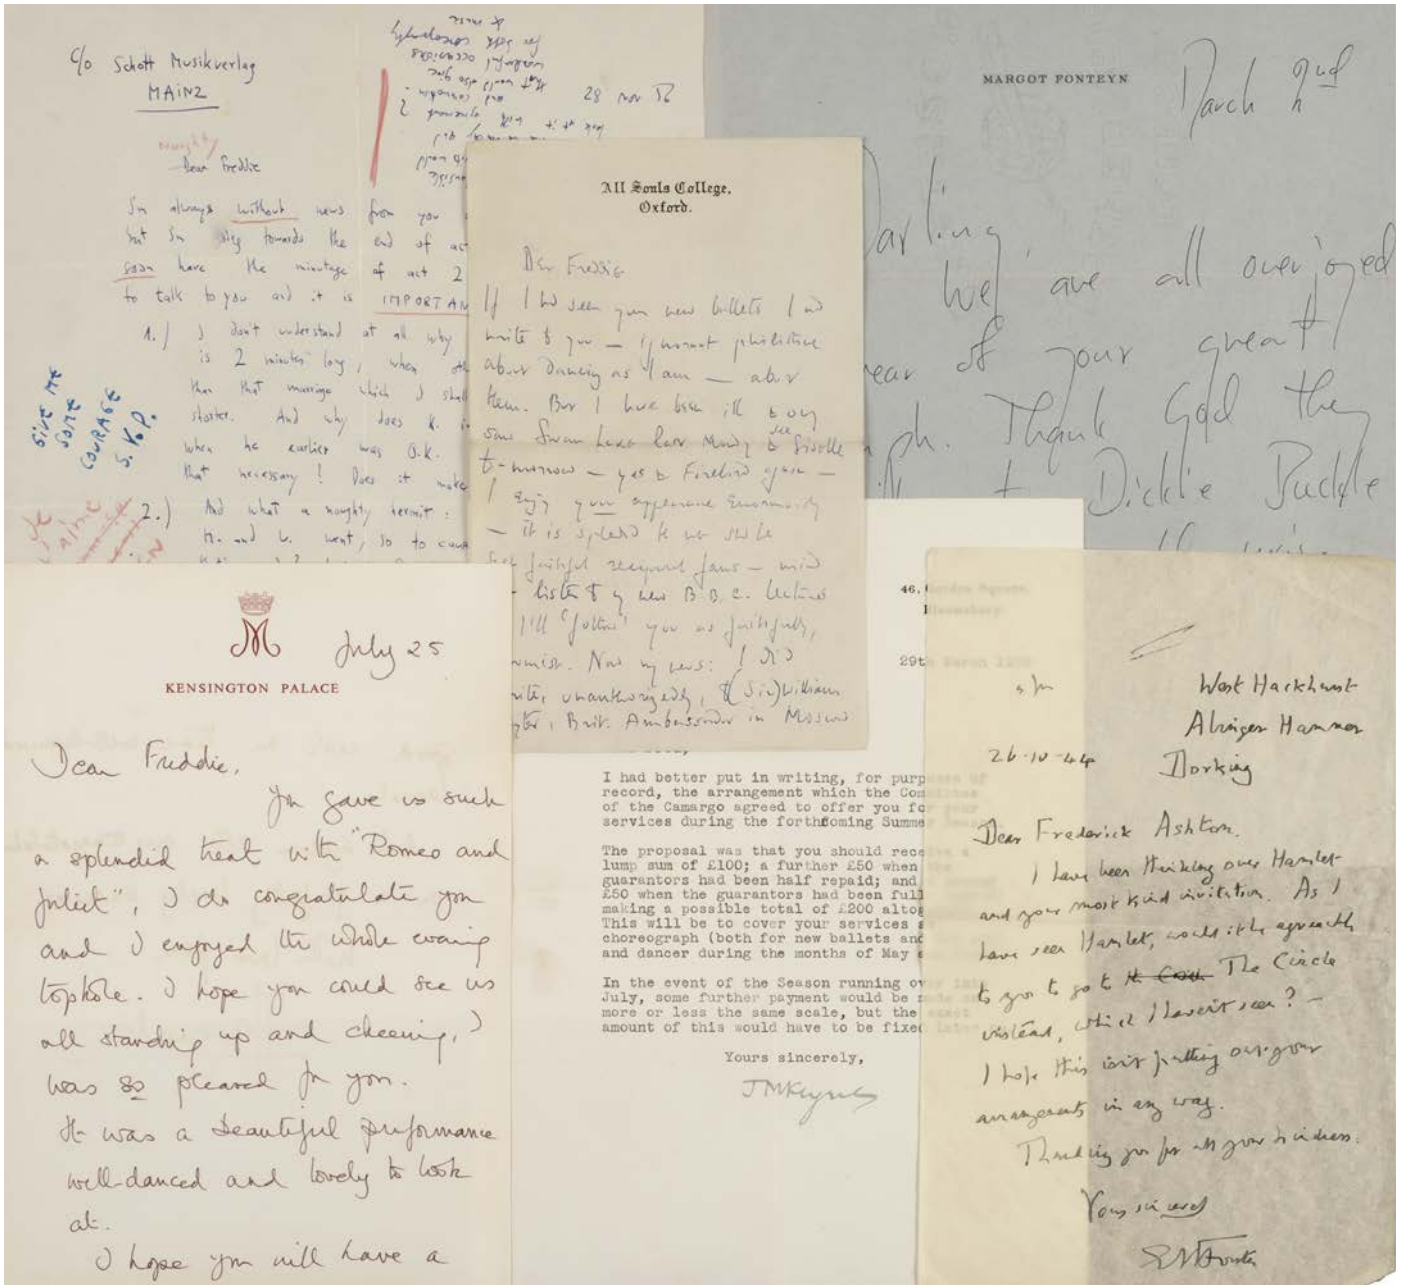 c/o Schott Musikverlag
MAINZ
28 Nov 56
naughty
Dear Freddie
I'm always without news from you
but I'm towards the end of act
soon have the minutage of act 2
to talk to you and it is IMPORTAN
1.) I don't understand at all why
is 2 minutes long, when
than that marriage which I shall
shorter. And why does K.
when he earlier was O.K.
that necessary! Does it make
2.) And what a naughty hermit:
H. and U. went, so to
GIVE ME
SOME
COURAGE
S.V.P.
& music
for both
wonderful occasions
that would also give
and
look at it with
MARGOT FONTEYN
March 2nd
Darling,
We are all overjoyed
ear of your great
ph. Thank God they
Dickie Buckle
All Souls College,
Oxford.
Dear Freddie
If I had seen your new ballets I wd
write to you – ignorant philistine
about Dancing as I am – about
them. But I have been ill & only
saw Swan Lake last Monday & see Giselle
to-morrow – yes & Firebird again –
I enjoy your appearance enormously
– it is splendid to
faithful reciprocal fans – mind
listen to my new B.B.C. lectures
I'll "follow" you as faithfully,
promise. Now my news: I did
write, unauthorizedly, to (Sir) William
Brit. Ambassador in Moscow
KENSINGTON PALACE
July 25
Dear Freddie,
You gave us such
a splendid treat with "Romeo and
Juliet", I do congratulate you
and I enjoyed the whole evening
tophole. I hope you could see us
all standing up and cheering, I
was so pleased for you.
It was a beautiful performance
well-danced and lovely to look
at.
I hope you will have a
46, Gordon Square,
Bloomsbury.
29th March
I had better put in writing, for purposes of
record, the arrangement which the Committee
of the Camargo agreed to offer you for your
services during the forthcoming Summer
The proposal was that you should receive a
lump sum of £100; a further £50 when
guarantors had been half repaid; and
£50 when the guarantors had been full
making a possible total of £200 altog
This will be to cover your services a
choreograph (both for new ballets and
and dancer during the months of May
In the event of the Season running over
July, some further payment would be made
more or less the same scale, but the exact
amount of this would have to be fixed later.
Yours sincerely,
JMKeynes
West Hackhurst
Abinger Hammer
Dorking
26-10-44
Dear Frederick Ashton.
I have been thinking over Hamlet
and your most kind invitation. As I
have seen Hamlet, would it be agreeable
to you to go to The Circle
instead, which I haven't seen? –
I hope this isn't putting out your
arrangements in any way.
Thanking you for all your kindness.
Yours sincerely
EMForster